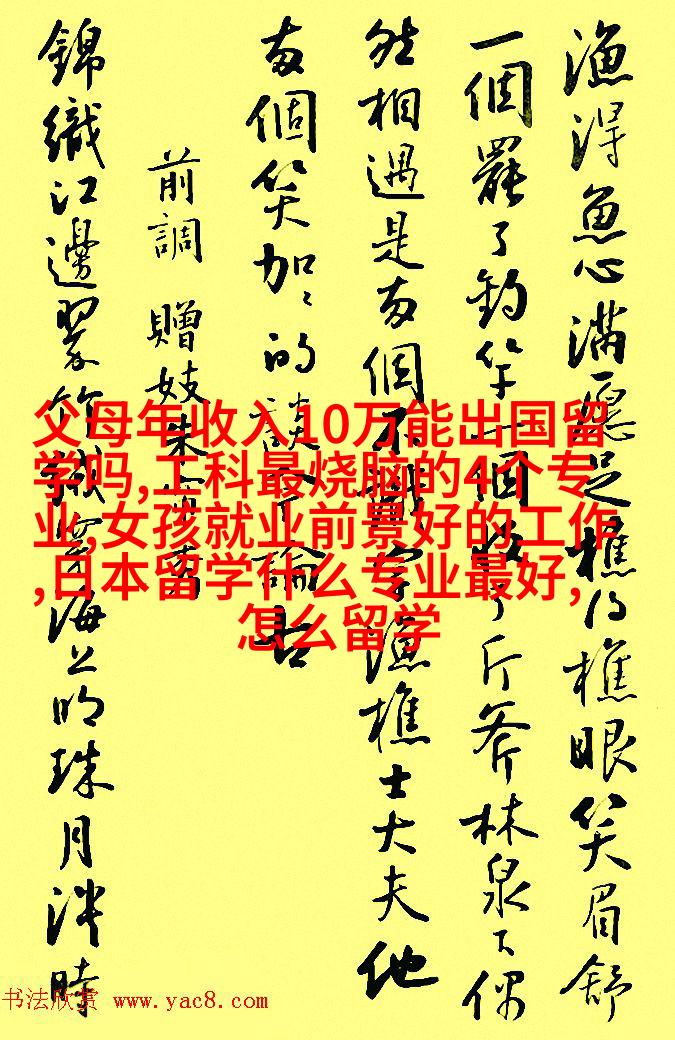 漁得魚心滿願足樵得樵眼笑眉舒
一個罷了釣竿一個收了斤斧林泉下偶
然相遇是兩個不識字漁樵士大夫他
兩個笑加〻的談今論古
前調 贈妓朱
錦織江邊翠竹絨穿海上明珠月淡時
父母年收入10万能出国留
学吗,工科最烧脑的4个专
业,女孩就业前景好的工作
,日本留学什么专业最好,
怎么留学
书法欣赏 www.yac8.com